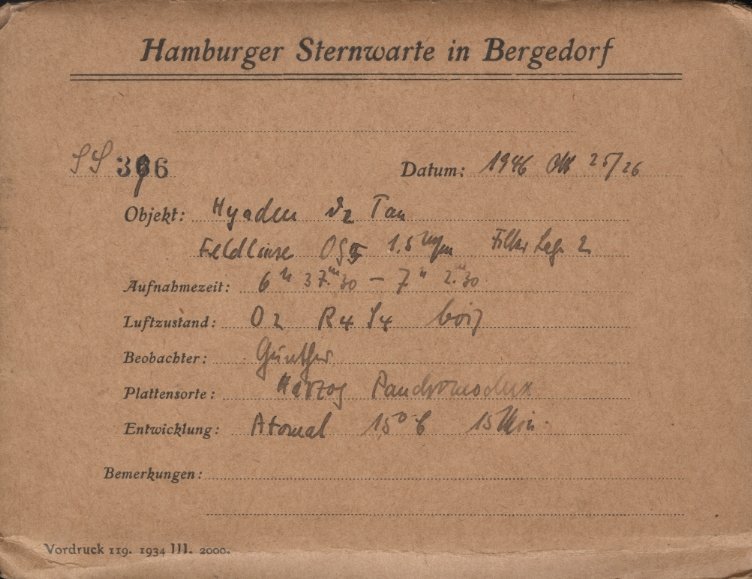 Hamburger Sternwarte in Bergedorf
SS 396 Datum: 1946 Okt 25/26
Objekt: Hyaden ϑ2 Tau
Feldlinse OG5 1.5 Filter Lage 2
Aufnahmezeit: 6h 37m30 – 7h 2m30
Luftzustand: O2 R4 S4 böig
Beobachter: Günther
Plattensorte: Herzog Panchromodux
Entwicklung: Atomal 15° C 15 Min.
Bemerkungen:
Vordruck 119. 1934 III. 2000.